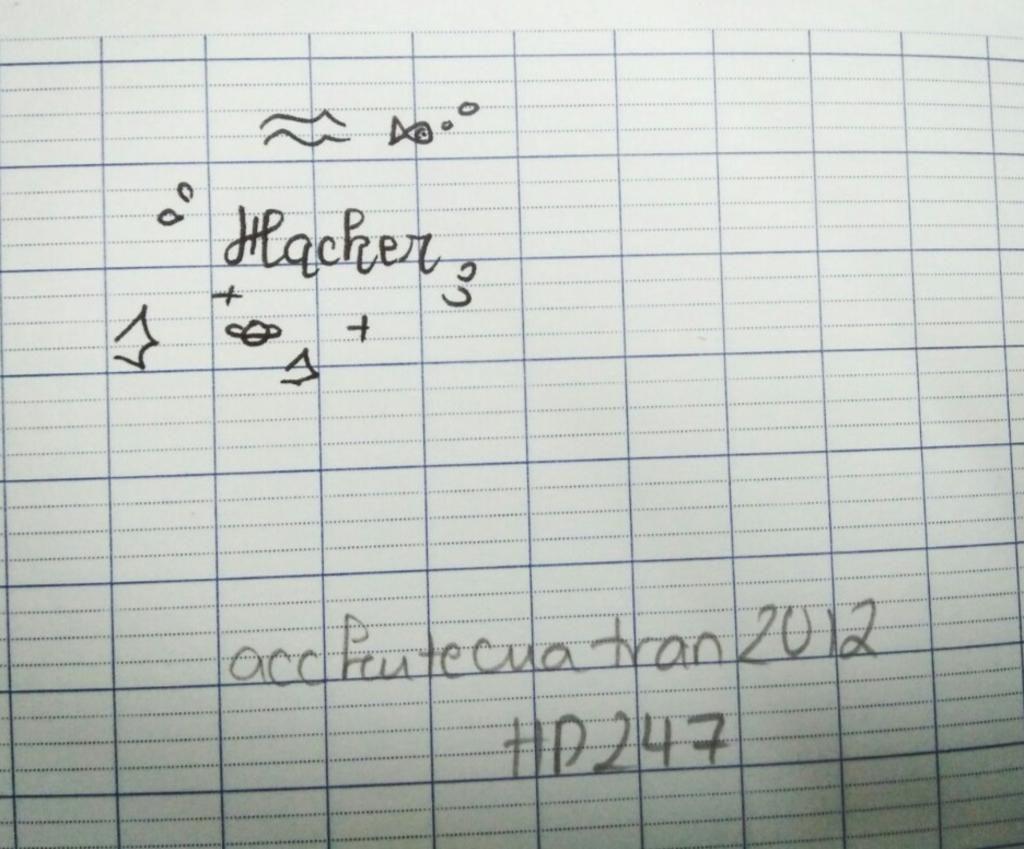 Hacker
acc kutecua tran 2012
HD247